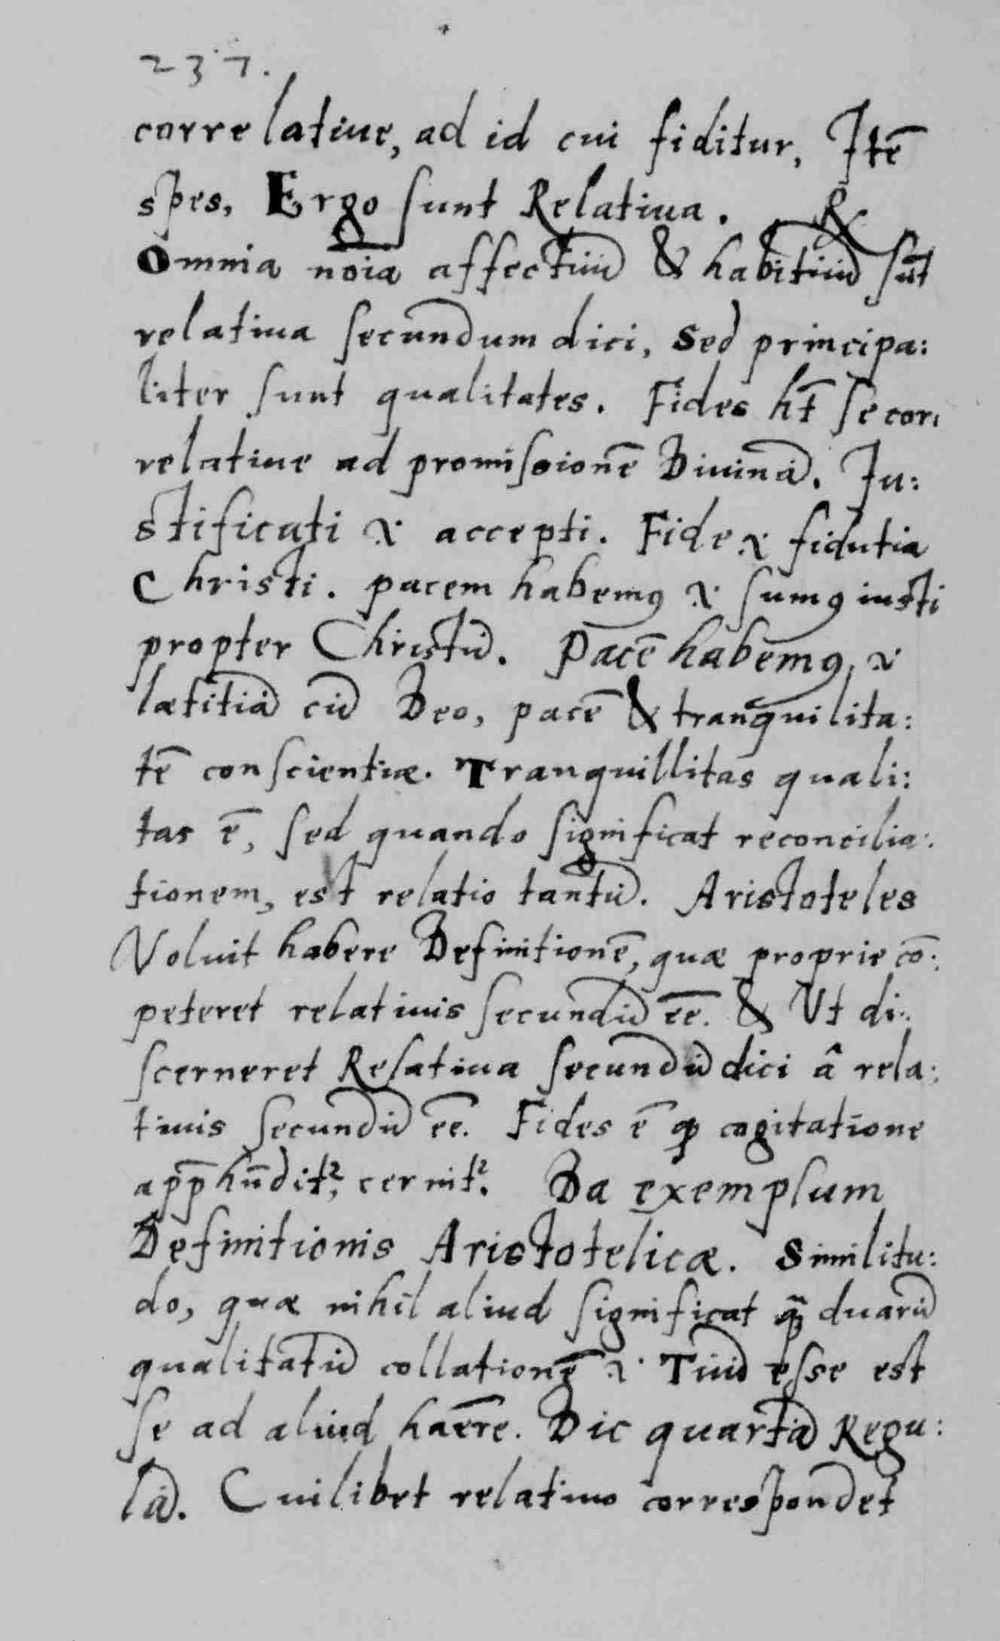 237.
correlatiue, ad id cui fiditur, Itē
spes, Ergo sunt Relatiua. R
Omnia nōia affectuū & habituū sūt
relatiua secundum dici, sed principa:
liter sunt qualitates. Fides ht̄ se cor:
relatiue ad promissionē Diuinā. Iu:
stificati & accepti. Fide & fidutia
Christi. pacem habemꝯ & sumꝯ iusti
propter Christū. Pacē habemꝯ, &
lætitiā cū Deo, pacē & tranquilita:
tē conscientiæ. Tranquillitas quali:
tas ē, sed quando significat reconcilia:
tionem, est relatio tantū. Aristoteles
Voluit habere Definitionē, quæ proprie cō:
peteret relatiuis secundū ēē. & Vt di:
scerneret Relatiua secundū dici â rela:
tiuis secundū ēē. Fides ē qꝫ cogitatione
app̄hn̄dit², cernit². Da exemplum
Definitionis Aristotelicæ. Similitu:
do, quæ nihil aliud significat quā duarū
qualitatū collationē & Tuū esse est
se ad aliud haēre. Dic quartā Regu:
lā. Cuilibet relatiuo correspondet